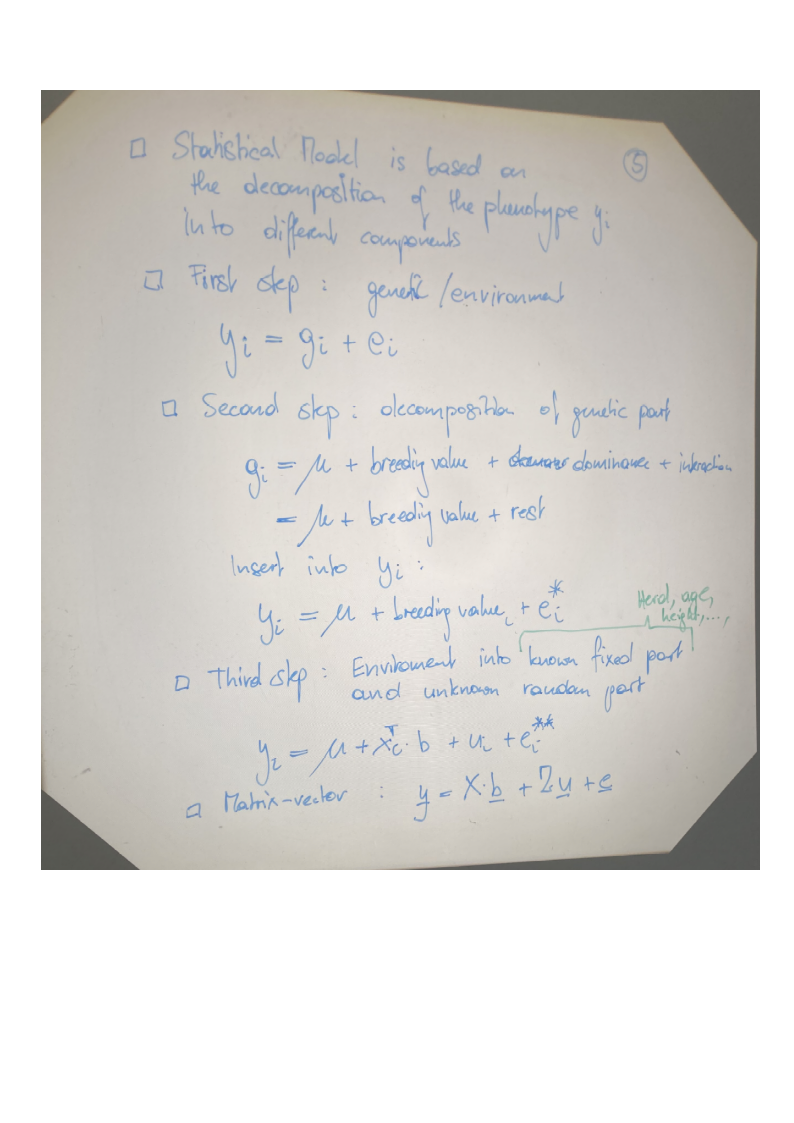 □ Statistical Model is based on
⑤
the decomposition of the phenotype yᵢ
into different components
□ First step : genetic / environment
yᵢ = gᵢ + eᵢ
□ Second step : decomposition of genetic part
gᵢ = μ + breeding value + dominance + interaction
= μ + breeding value + rest
Insert into yᵢ :
yᵢ = μ + breeding valueᵢ + eᵢ*
Herd, age,
height, ...,
□ Third step : Enviroment into known fixed part
and unknown random part
yᵢ = μ + xᵢᵀ · b + uᵢ + eᵢ**
□ Matrix-vector : y = X · b + Zu + e